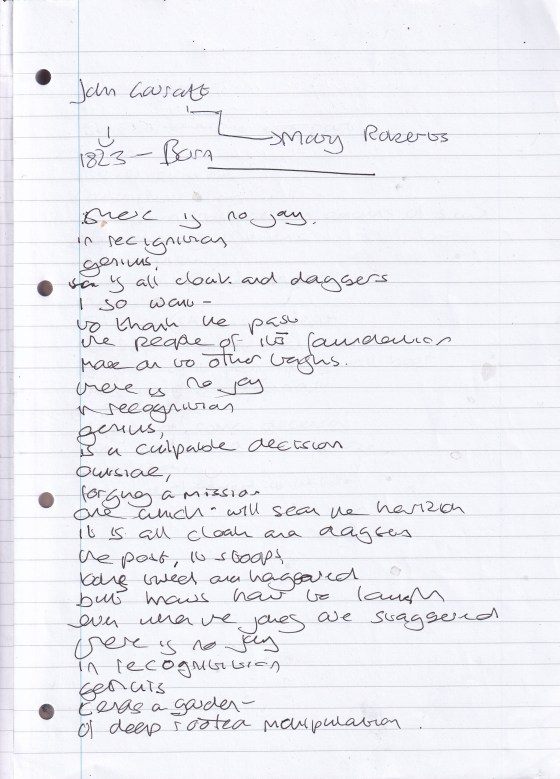 John
Mary
1823 - Born
there is no joy.
in recognition
genius,
is all cloak and daggers
I so want -
to thank the past
the people of its foundation
move on to other
there is no joy
in recognition
genius,
is a culpable decision
outside,
forging a mission
one which - will sear the horizon
it is all cloak and daggers
the past, it stoops
tired and haggered
but knows how to laugh
even when the jokes are staggered
there is no joy
in recognition
genius
tends a garden -
of deep rooted manipulation.